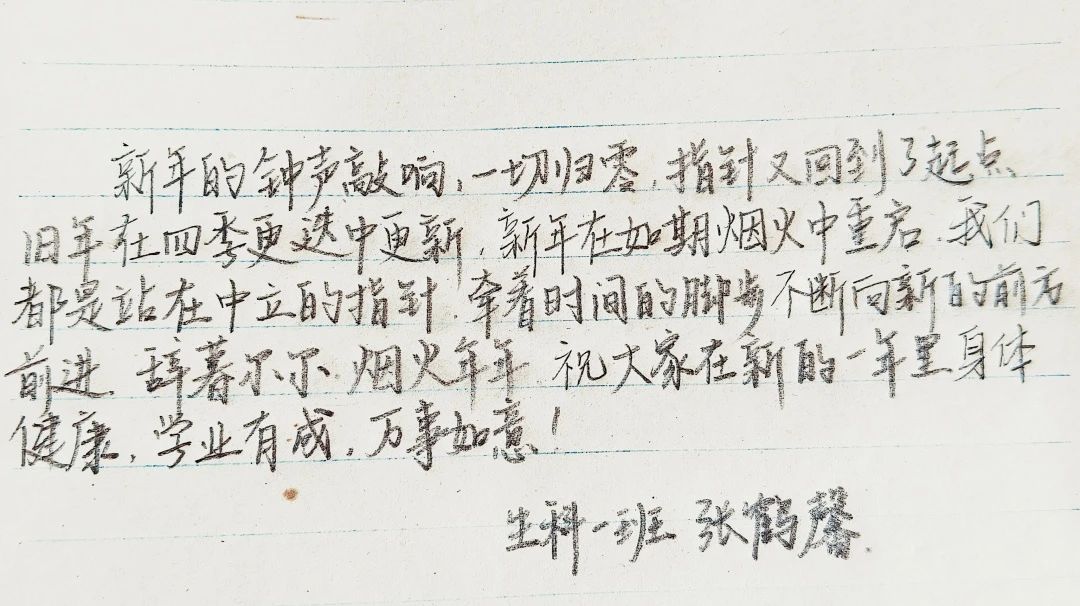 新年的钟声敲响，一切归零，指针又回到了起点
旧年在四季更迭中更新，新年在如期烟火中重启，我们
都是站在中立的指针，牵着时间的脚步不断向新的前方
前进，辞暮尔尔 烟火年年 祝大家在新的一年里身体
健康，学业有成，万事如意！
生科一班 张鹤馨